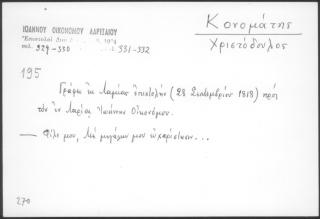 Κονομάτης
Χριστόδουλος
ΙΩΑΝΝΟΥ ΟΙΚΟΝΟΜΟΥ ΛΑΡΙΣΑΙΟΥ
Ἐπιστολαὶ 1974
σελ. 329-330 331-332
195
Γράφει ἐκ Λαμίας ἐπιστολὴν (28 Σεπτεμβρίου 1818) πρὸς
τὸν ἐν Λαρίσῃ Ἰωάννην Οἰκονόμον.
— Φίλε μου, Μὲ μεγάλην μου εὐχαρίστησιν...
270